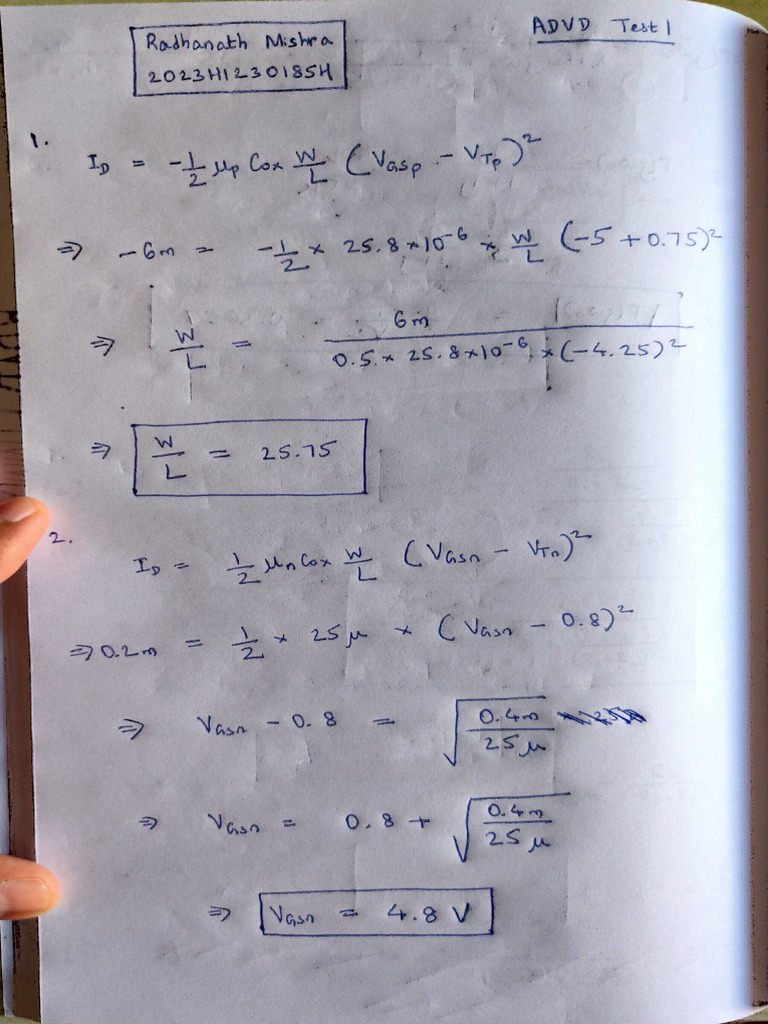 ADVD Test 1
Radhanath Mishra
2023H1230185H
1.
I_D = -1/2 μp Cox W/L (VGSp - VTp)²
⇒ -6m = -1/2 × 25.8×10⁻⁶ × W/L (-5 + 0.75)²
⇒ W/L = 6m / 0.5 × 25.8×10⁻⁶ × (-4.25)²
⇒ W/L = 25.75
2.
I_D = 1/2 μn Cox W/L (VGSn - VTn)²
⇒ 0.2m = 1/2 × 25μ × (VGSn - 0.8)²
⇒ VGSn - 0.8 = √(0.4m / 25μ)
⇒ VGSn = 0.8 + √(0.4m / 25μ)
⇒ VGSn = 4.8 V